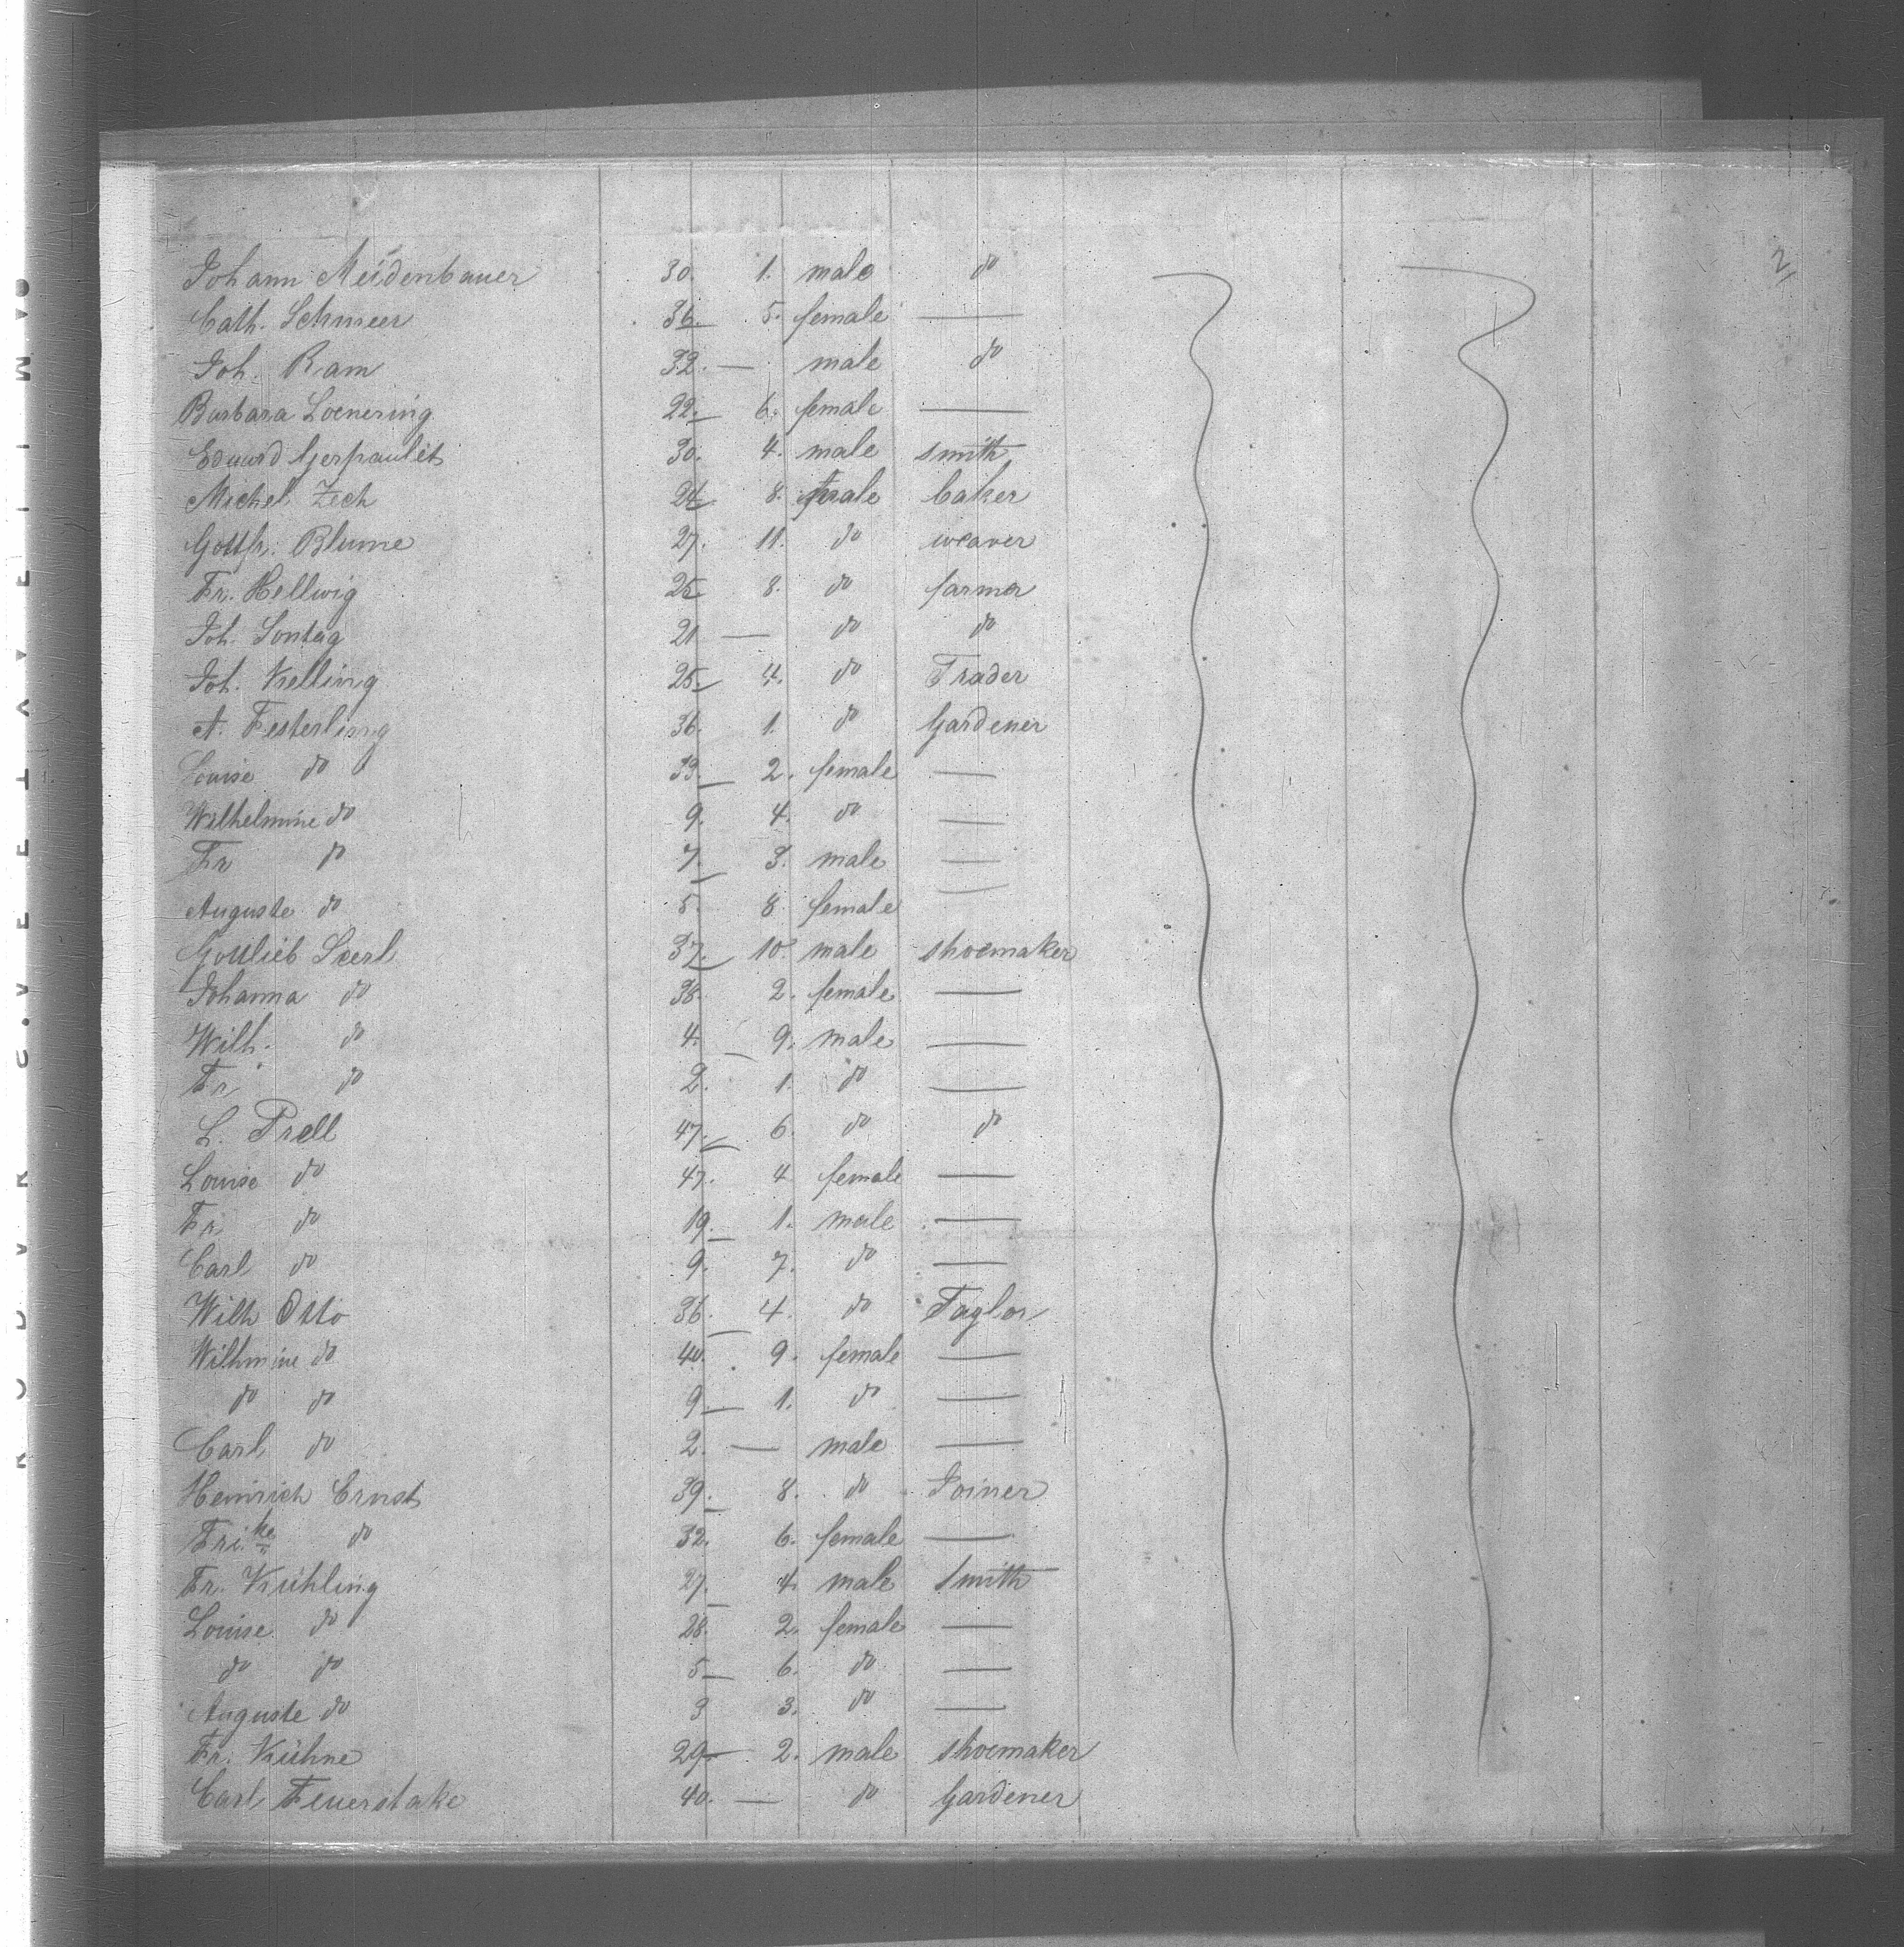 2
Johann Meidenbauer 30. 1. male do
Cath. Schmeer 36. 5. female —
Joh. Ram 32. — male do
Barbara Loenering 22. 6. female —
Eduard Gerpaulet 30. 4. male smith
Michel Zech 24 8. male baker
Gottfr. Blume 27. 11. do weaver
Fr. Hellwig 25 8. do farmer
Joh. Sontag 21 — do do
Joh. Kelling 25. 4. do Trader
A. Festerling 36. 1. do Gardener
Louise do 33. 2. female —
Wilhelmine do 9. 4. do —
Fr do 7. 3. male —
Auguste do 5. 8 female —
Gottlieb Seerl 37. 10. male shoemaker
Johanna do 38. 2. female —
Wilh. do 4. 9. male —
Fr do 2. 1. do —
L. Prell 47. 6. do do
Louise do 47. 4 female —
Fr. do 19. 1. male —
Carl do 9. 7. do —
Wilh Otto 36. 4. do Taylor
Wilhmine do 40. 9. female —
do do 9. 1. do —
Carl do 2. — male —
Heinrich Ernst 39. 8. do Joiner
Fri.ke do 32. 6. female —
Fr. Kühling 27. 4. male Smith
Louise do 28. 2. female —
do do 5 6. do —
Auguste do 3 3. do —
Fr. Kühne 29 2. male shoemaker
Carl Feuerstake 40. — do Gardener